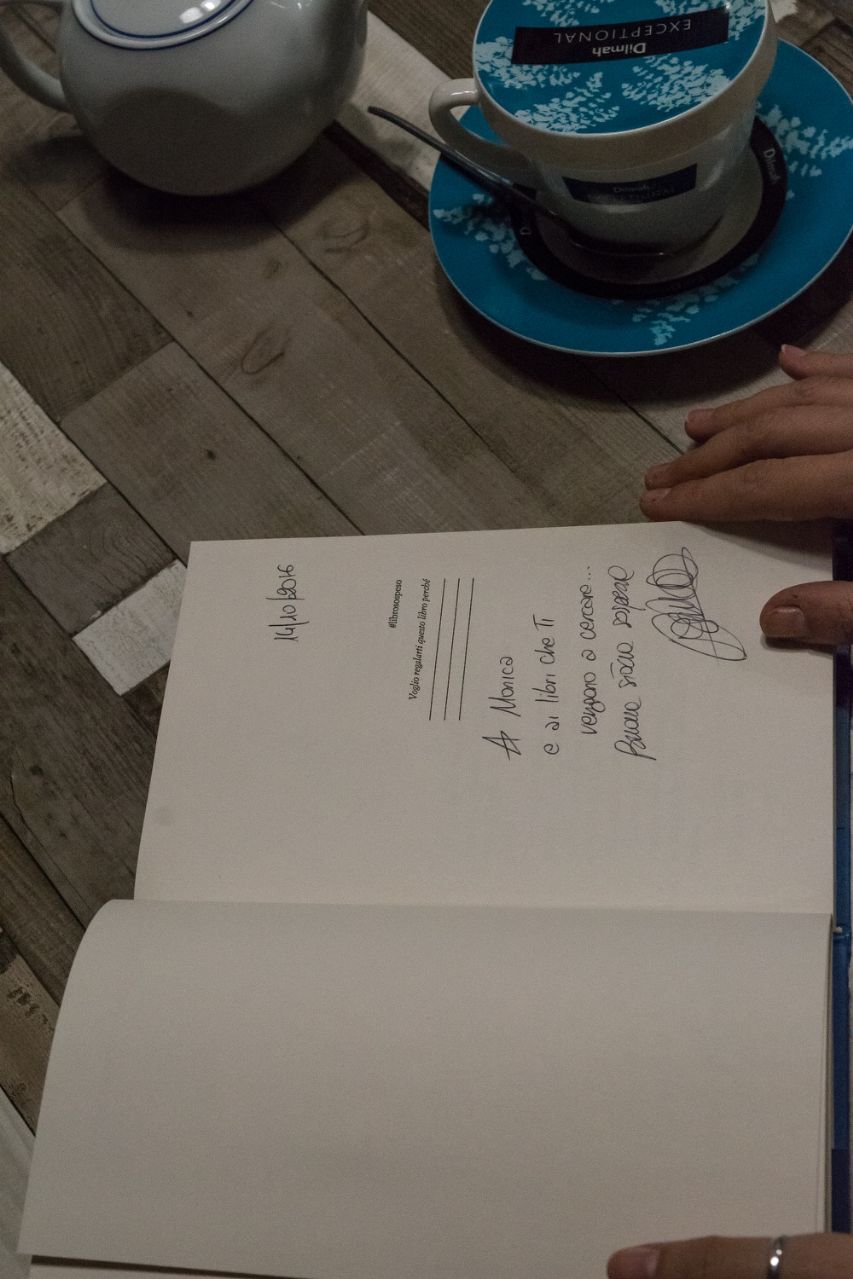 Dilmah
EXCEPTIONAL
Dilmah
Dilmah
14/10/2016
#librosospeso
Voglio regalarti questo libro perché
A Monica
e ai libri che Ti
vengono a cercare...
Buone storie sospese